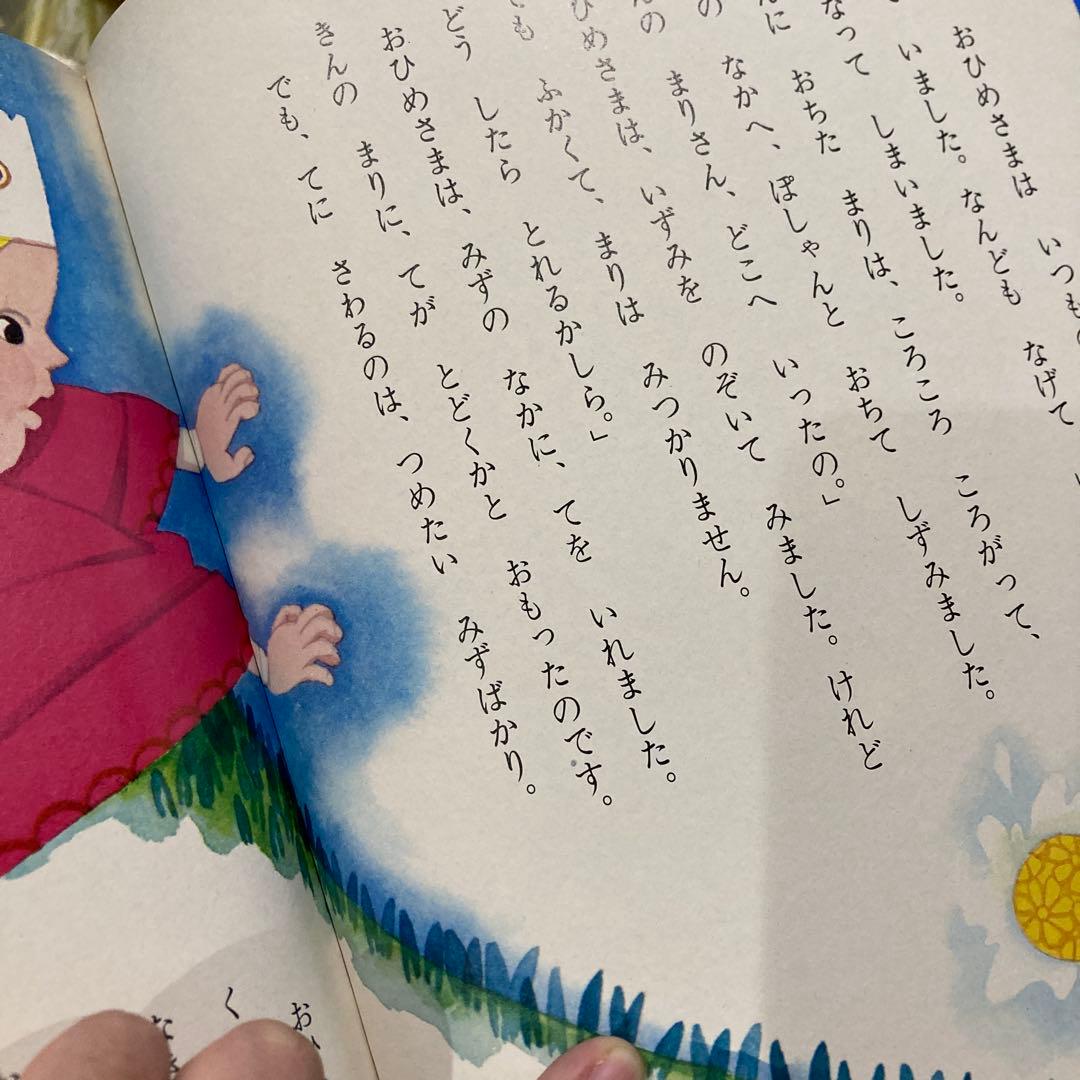 おひめさまは いつもの
いました。なんども なげて
なって しまいました。
に おちた まりは、ころころ ころがって、
の なかへ、ぽしゃんと おちて しずみました。
んの まりさん、どこへ いったの。」
ひめさまは、いずみを のぞいて みました。けれど
も ふかくて、まりは みつかりません。
どう したら とれるかしら。」
おひめさまは、みずの なかに、てを いれました。
きんの まりに、てが とどくかと おもったのです。
でも、てに さわるのは、つめたい みずばかり。
お
く